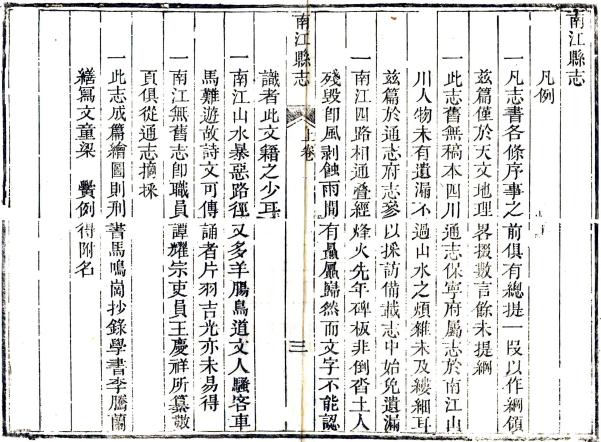 南江縣志
凡例
一凡志書各條序事之前俱有總提一段以作綱領
茲篇僅於天文地理畧掇數言餘未提綱
一此志舊無稿本四川通志保寧府屬志於南江山
川人物未有遺漏不過山水之煩雜未及縷細耳
茲篇於通志府志參以採訪備載志中始免遺漏
一南江四路相通叠經烽火先年碑板非倒沓土人
殘毀卽風剥蝕雨間有贔屭巋然而文字不能認
南江縣志
上卷
三
識者此文籍之少耳
一南江山水暴惡路徑又多羊腸鳥道文人騷客車
馬難遊故詩文可傳誦者片羽吉光亦未易得
一南江無舊志卽職員譚耀宗吏員王慶祥所纂數
頁俱從通志摘採
一此志成篇繪圖則刑書馬鳴崗抄錄學書李騰蘭
繕寫文童梁 例得附名